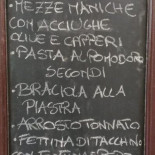 • MEZZE MANICHE
CON ACCIUGHE
OLIVE E CAPPERI
• PASTA AL POMODORO
SECONDI
• BRACIOLA ALLA
PIASTRA
• ARROSTO TONNATO
• FETTINA DI TACCHINO
CON